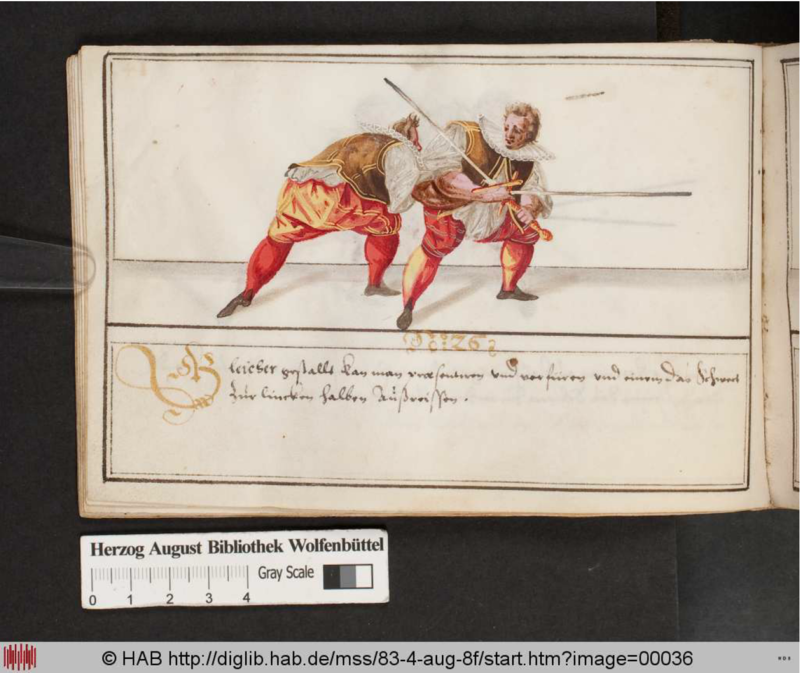 :126:
Gleicher gestallt kan man praesentiren und verfüren und einem das Schwert
zur lincken halben Außreissen.
Herzog August Bibliothek Wolfenbüttel
Gray Scale
0 1 2 3 4
© HAB http://diglib.hab.de/mss/83-4-aug-8f/start.htm?image=00036